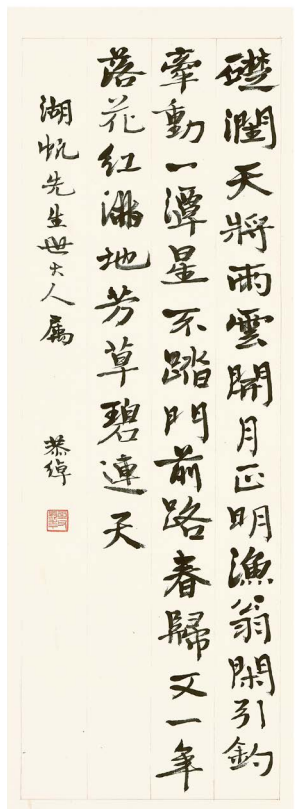 礎潤天將雨雲開月正明漁翁閑引釣
牽動一潭星不踏門前路春歸又一年
落花紅滿地芳草碧連天
湖帆先生世大人屬
恭綽